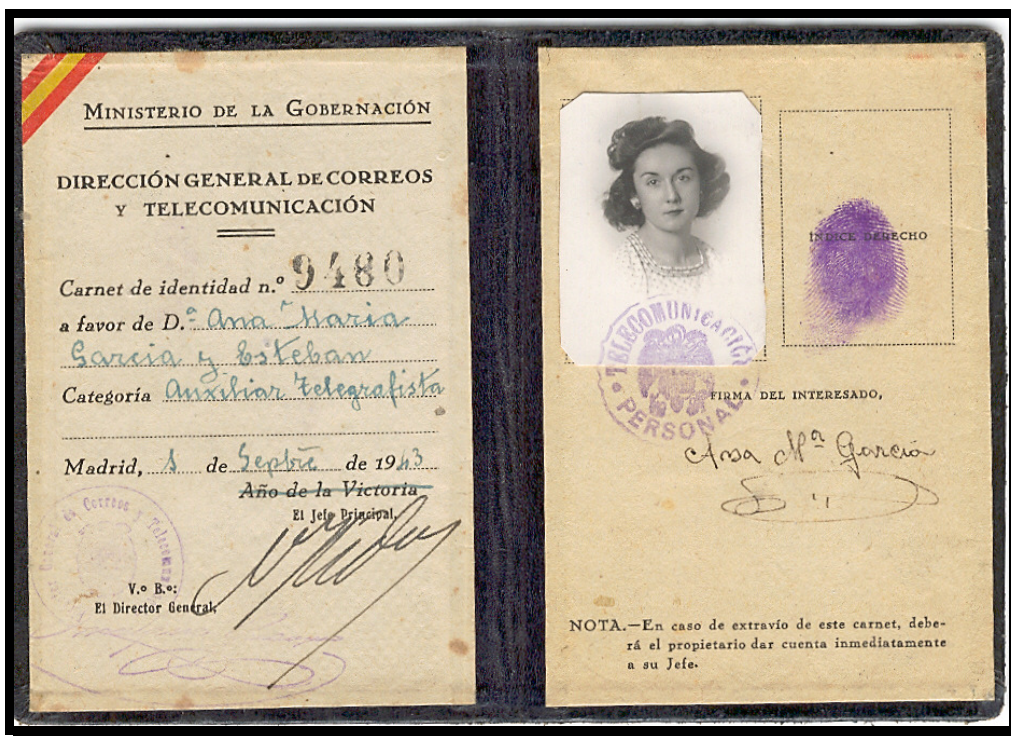 MINISTERIO DE LA GOBERNACIÓN
DIRECCIÓN GENERAL DE CORREOS
Y TELECOMUNICACIÓN
Carnet de identidad n.º 9480
a favor de D.ª Ana Maria
Garcia y Esteban
Categoría Auxiliar Telegrafista
Madrid, 1 de Sepbre de 1943
Año de la Victoria
El Jefe Principal,
V.º B.º:
El Director General,
ÍNDICE DERECHO
TELECOMUNICACIÓN
PERSONAL
FIRMA DEL INTERESADO,
Ana Mª García
NOTA.—En caso de extravío de este carnet, debe-
rá el propietario dar cuenta inmediatamente
a su Jefe.